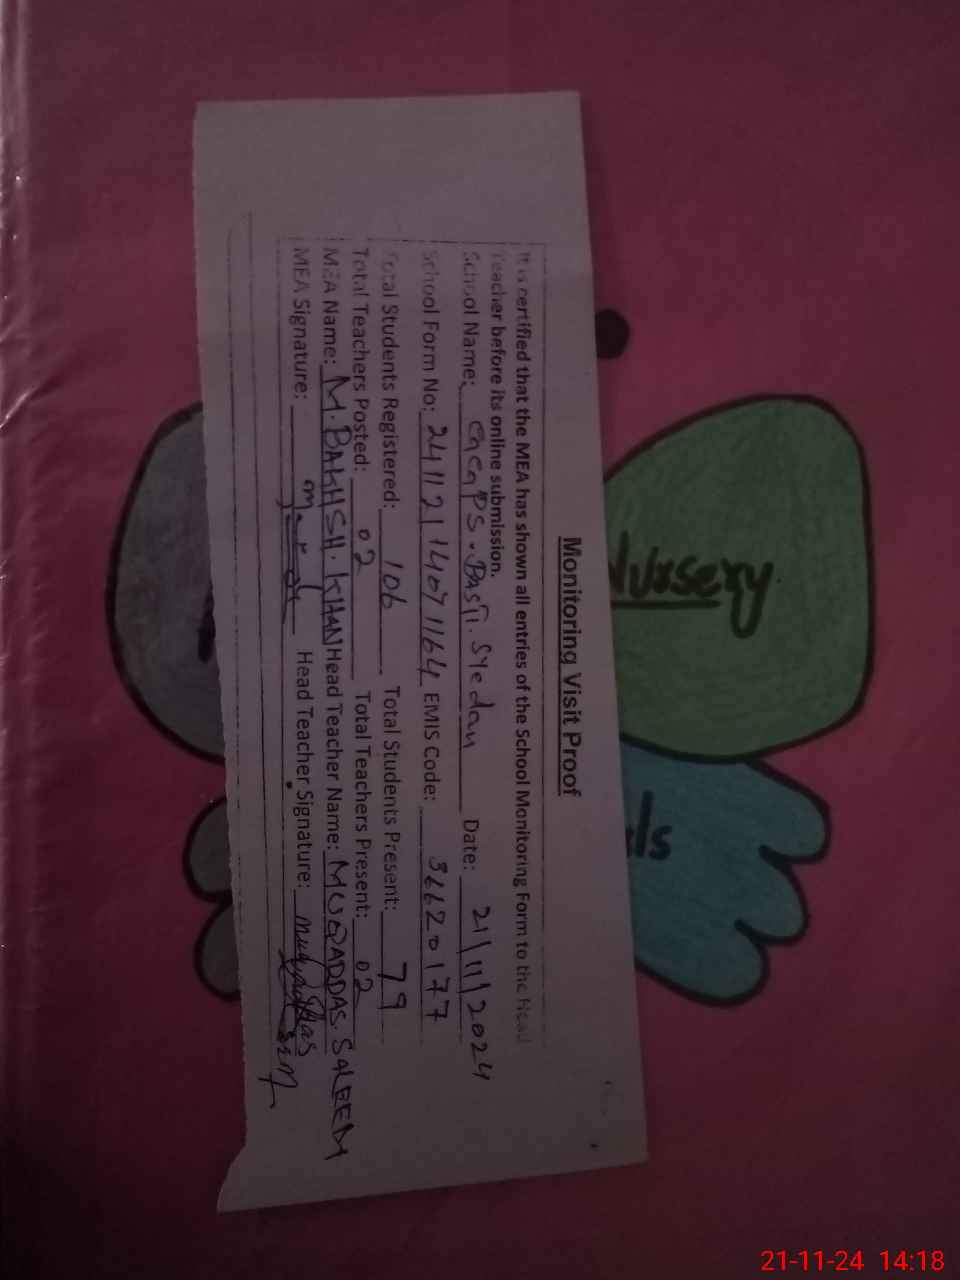 Monitoring Visit Proof
It is certified that the MEA has shown all entries of the School Monitoring Form to the Head
Teacher before its online submission.
School Name: GGPS. BASTI. SYedan Date: 21/11/2024
School Form No: 241121140711164 EMIS Code: 36620177
Total Students Registered: 106 Total Students Present: 79
Total Teachers Posted: 02 Total Teachers Present: 02
MEA Name: M. BAKHSH. KHAN Head Teacher Name: MUQADDAS. SALEEM
MEA Signature: Head Teacher Signature: Muqaddas
Nursery
ls
21-11-24 14:18